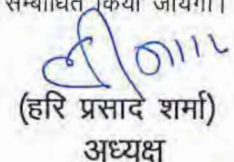 सम्बोधित किया जायेगा।
(हरि प्रसाद शर्मा)
अध्यक्ष